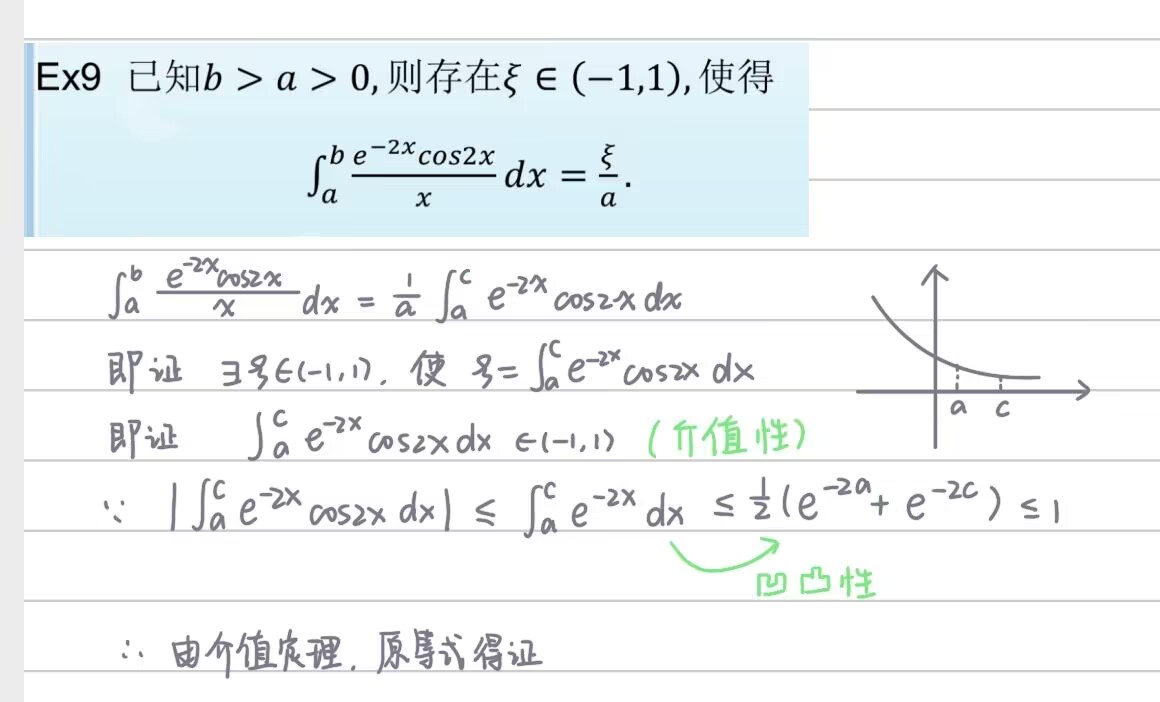 Ex9 已知b > a > 0, 则存在ξ ∈ (−1,1), 使得
∫_a^b e^{−2x}cos2x / x dx = ξ/a.
∫_a^b e^{-2x}cos2x / x dx = 1/a ∫_a^c e^{-2x} cos2x dx
即证 ∃ξ∈(-1,1), 使 ξ = ∫_a^c e^{-2x} cos2x dx
即证 ∫_a^c e^{-2x} cos2x dx ∈(-1,1) (介值性)
a c
∵ |∫_a^c e^{-2x} cos2x dx| ≤ ∫_a^c e^{-2x} dx ≤ 1/2 (e^{-2a} + e^{-2c}) ≤ 1
凹凸性
∴ 由介值定理, 原等式得证